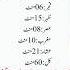 فجر:06منٹ
ظہر:15منٹ
عصر:10منٹ
مغرب:10منٹ
عشاء:21منٹ
کل:60منٹ